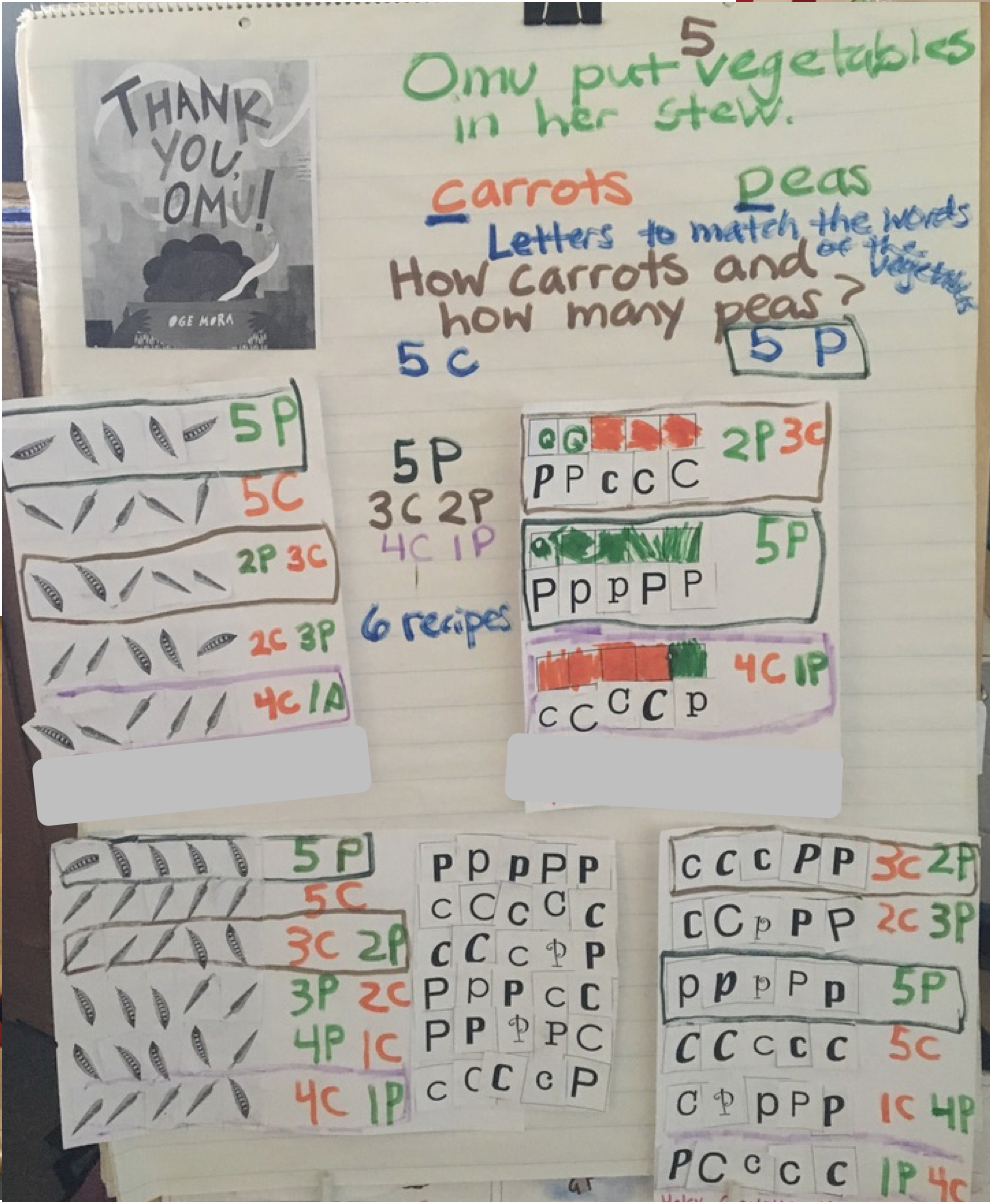 THANK
YOU,
OMU!
OGE MORA
5
Omu put vegetables
in her stew.
carrots peas
Letters to match the words
of the
vegetables
How carrots and
how many peas?
5 C 5 P
5P
5C
2P 3C
2C 3P
4C 1A
5P
3C 2P
4C 1P
6 recipes
2P 3C
P P c c C
5P
P p p P P
4C 1P
c C C C p
5 P
5C
3C 2P
3P 2C
4P 1C
4C 1P
P p p P P
C C C C C
C C C P P
P P P C C
P P P P C
C C C C P
C C C P P 3C 2P
C C P P P 2C 3P
P P P P P 5P
C C C C C 5C
C P P P P 1C 4P
P C C C C 1P 4C